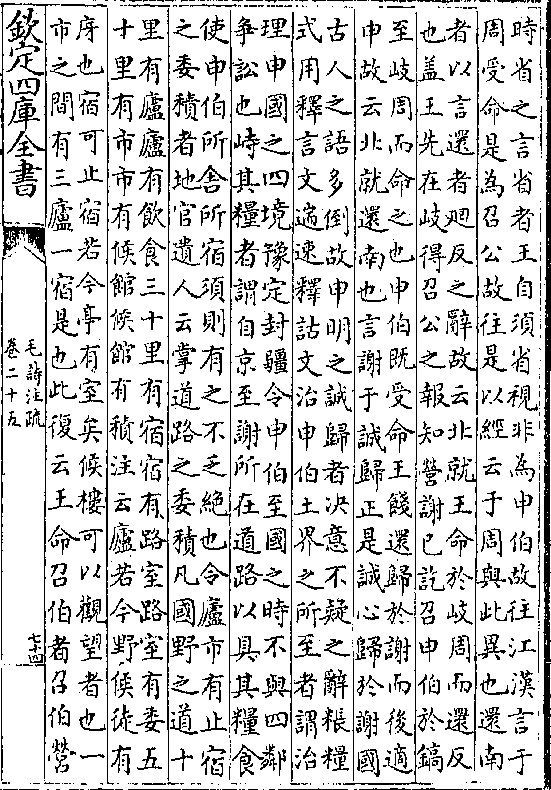 時省之言省者王自須省視非為申伯故往江漢言于
周受命是為召公故往是以經云于周與此異也還南
者以言還者廻反之辭故云北就王命於岐周而還反
也盖王先在岐得召公之報知營謝已訖召申伯於鎬
至岐周而命之也申伯既受命王餞還歸於謝而後適
申故云北就還南也言謝于誠歸正是誠心歸於謝國
古人之語多倒故申明之誠歸者决意不疑之辭粻糧
式用釋言文遄速釋詁文治申伯土界之所至者謂治
理申國之四境豫定封疆令申伯至國之時不與四鄰
爭訟也峙其糧者謂自京至謝所在道路以具其糧食
使申伯所舍所宿須則有之不乏絶也令廬市有止宿
之委積者地官遺人云掌道路之委積凡國野之道十
里有廬廬有飲食三十里有宿宿有路室路室有委五
十里有市市有候館候館有積注云廬若今野候徒有
序也宿可止宿若今亭有室矣候樓可以觀望者也一
市之間有三廬一宿是也此復云王命召伯者召伯營
欽定四庫全書
毛詩注疏
卷二十五
七十四